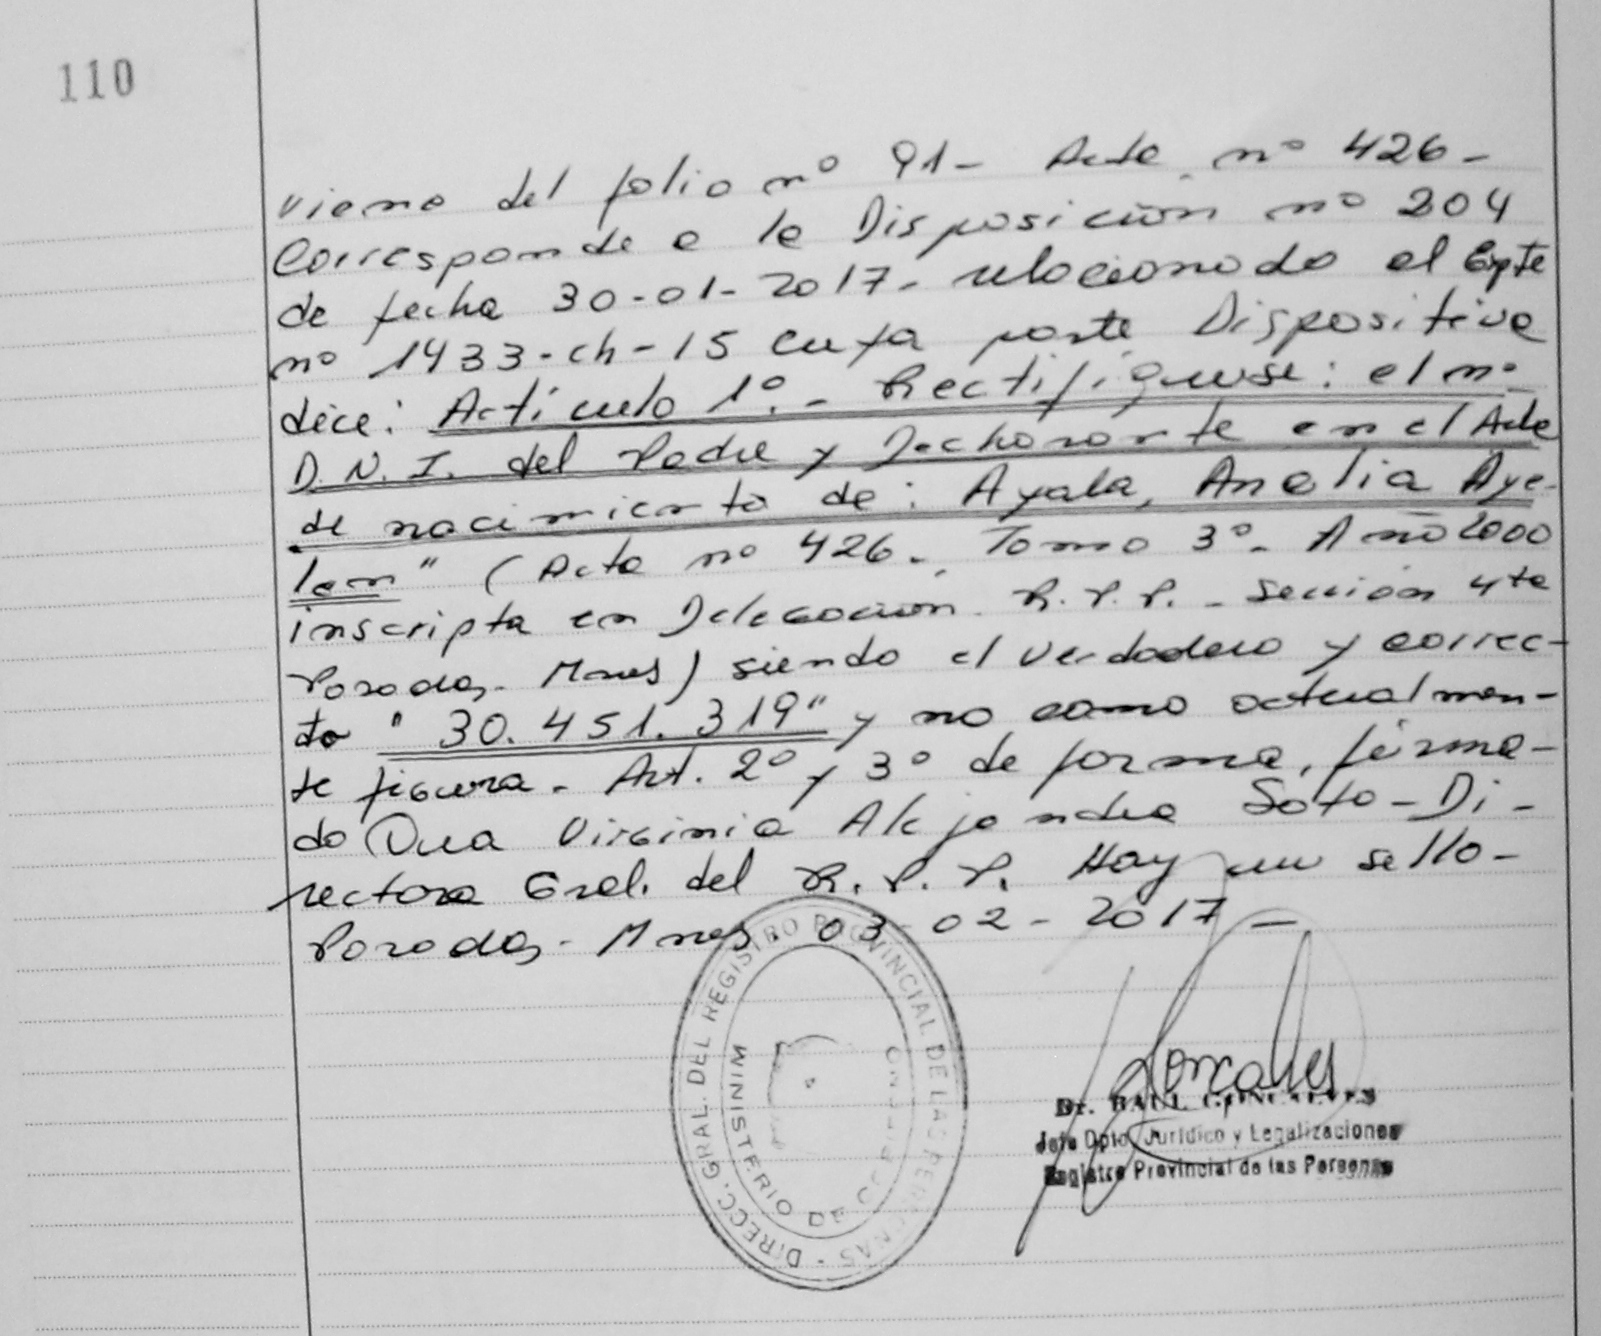 110
Viene del folio nº 91- Acta nº 426-
Corresponde a la Disposición nº 204
de fecha 30-01-2017- relacionado al Expte
nº 1433-Ch-15 cuya parte Dispositiva
dice: Artículo 1º.- Rectifíquese: el nº
D.N.I. del Padre y Declarante en el Acta
de nacimiento de: Ayala, Analia Aye-
len" (Acta nº 426- Tomo 3º- Año 2000
inscripta en Delegación R.P.P.- Sección 4ta
Posadas- Mnes) siendo el verdadero y correc-
to "30.451.319" y no como actualmen-
te figura- Art. 2º y 3º de forma, firma-
do Dra Virginia Alejandra Soto- Di-
rectora Gral. del R.P.P. Hay un sello-
Posadas- Mnes. 03-02-2017-
DIRECC. GRAL. DEL REGISTRO PROVINCIAL DE LAS PERSONAS -
MINISTERIO DE GOBIERNO
Dr. RAUL GONCALVES
Jefe Dpto. Jurídico y Legalizaciones
Registro Provincial de las Personas